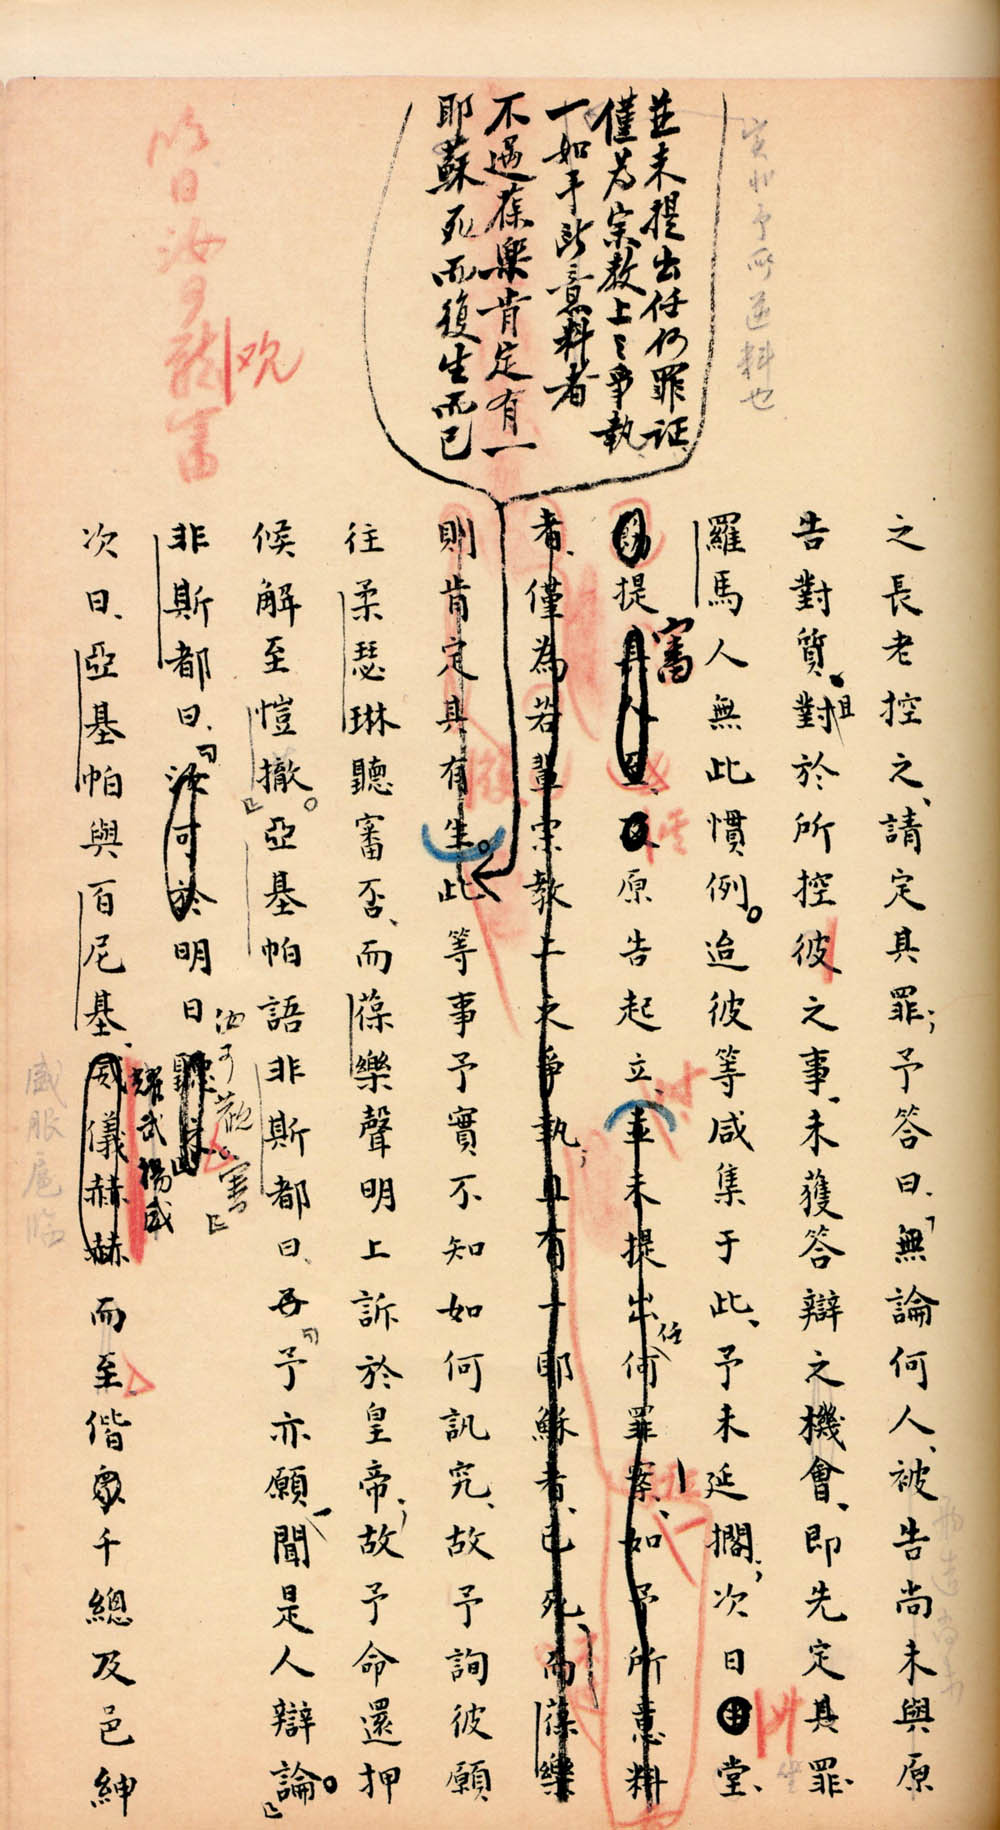 並未提出任何罪証
僅为宗教上之爭執
一如予所意料者
不过葆樂肯定有一
耶蘇死而復生而已
之長老控之、請定其罪；予答曰、「無論何人、被告尚未與原
告對質、且對於所控彼之事、未獲答辯之機會、即先定其罪、
羅馬人無此慣例。迨彼等咸集于此、予未延擱；次日堂、
提審原告起立、並未提出任何罪案、如予所意料
者、僅為若輩宗教上之爭執；且有一耶穌者、已死、而葆樂
則肯定其有生。此等事予實不知如何訊究、故予詢彼願
往柔瑟琳聽審否、而葆樂聲明上訴於皇帝；故予命還押
候解至愷撒。』亞基帕語非斯都曰、再『予亦願聞是人辯論。』
非斯都曰、『汝可於明日聽
汝可觀審』
次日、亞基帕與百尼基、威儀赫赫而至、偕千總及邑紳
耀武揚威
盛服扈臨
明日汝可
观審